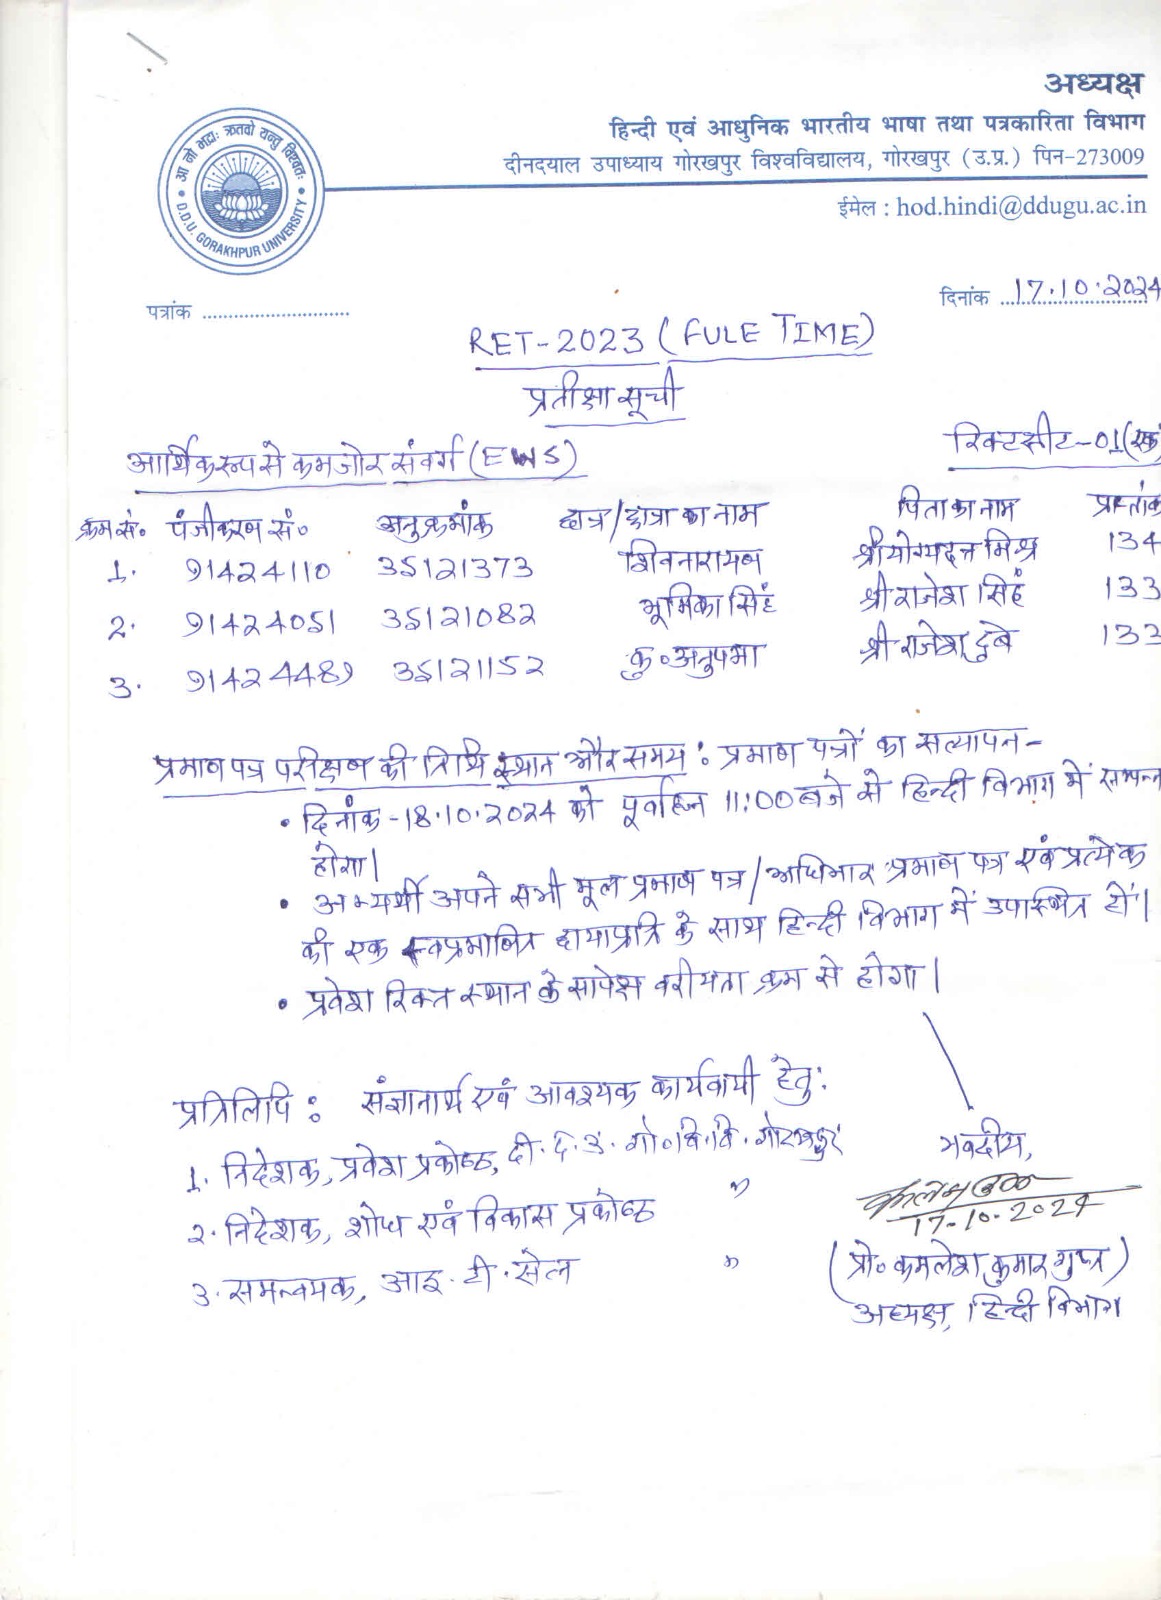 अध्यक्ष
हिन्दी एवं आधुनिक भारतीय भाषा तथा पत्रकारिता विभाग
दीनदयाल उपाध्याय गोरखपुर विश्वविद्यालय, गोरखपुर (उ.प्र.) पिन-273009
ईमेल : hod.hindi@ddugu.ac.in
आ नो भद्राः क्रतवो यन्तु विश्वतः
D.D.U. GORAKHPUR UNIVERSITY
पत्रांक ............................
दिनांक 17.10.2024
RET-2023 (FULE TIME)
प्रतीक्षा सूची
आर्थिक रूप से कमजोर संवर्ग (EWS)
रिक्ट सीट-01 (एक
क्रम सं० पंजीकरण सं० अनुक्रमांक छात्र/छात्रा का नाम पिता का नाम प्राप्तांक
1. 91424110 35121373 शिवनारायण श्री योग्यदत्त मिश्र 134
2. 91424051 35121082 भूमिका सिंह श्री राजेश सिंह 133
3. 91424489 35121152 कु० अनुपमा श्री राजेश दुबे 133
प्रमाण पत्र परीक्षण की तिथि स्थान और समय : प्रमाण पत्रों का सत्यापन-
• दिनांक -18.10.2024 को पूर्वाह्न 11:00 बजे से हिन्दी विभाग में सम्पन्न
होगा।
• अभ्यर्थी अपने सभी मूल प्रमाण पत्र/अधिभार प्रमाण पत्र एवं प्रत्येक
की एक स्वप्रमाणित छायाप्रति के साथ हिन्दी विभाग में उपस्थित हों।
• प्रवेश रिक्त स्थान के सापेक्ष वरीयता क्रम से होगा।
प्रतिलिपि : संज्ञानार्थ एवं आवश्यक कार्यवायी हेतु:
1. निदेशक, प्रवेश प्रकोष्ठ, दी.द.उ. गो०वि.वि. गोरखपुर
2. निदेशक, शोध एवं विकास प्रकोष्ठ "
3. समन्वयक, आइ.टी.सेल "
भवदीय,
17-10-2024
(प्रो० कमलेश कुमार गुप्त)
अध्यक्ष, हिन्दी विभाग